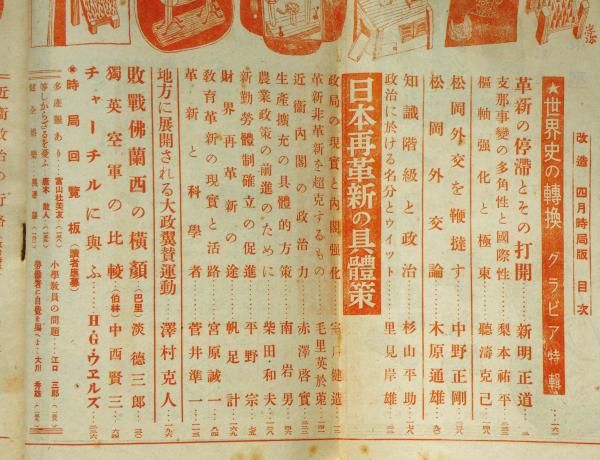 改造 四月時局版 目次
★世界史の轉換 グラビア特輯
革新の停滯とその打開 新明正道
支那事變の多角性と國際性 梨本祐平
樞軸強化と極東 聽濤克己
松岡外交を鞭撻す 中野正剛
松岡外交論 木原通雄
知識階級と政治 杉山平助
政治に於ける名分とウイット 里見岸雄
日本再革新の具體策
政局の現實と内閣強化 室戸健造
革新非革新を超克するもの 毛里英於菟
近衞内閣の政治力 赤澤啓實
生產擴充の具體的方策 南岩男
農業政策の前進のために 柴田和夫
新勤勞體制確立の促進 平野宗
財界再革新の途 帆足計
教育革新の現實と活路 宮原誠一
革新と科學者 菅井準一
地方に展開される大政翼賛運動 澤村克人
敗戰佛蘭西の横顏(巴里) 淡德三郎
獨英空軍の比較(伯林) 中西賢三
チャーチルに與ふ H・G・ウェルズ
★時局回覽板(讀者應募)
多產難あり
等しからざるを憂ふ
小學教員の問題 江口三郎
勞働者に自覺を促す 大川秀雄
近衞政治の行路